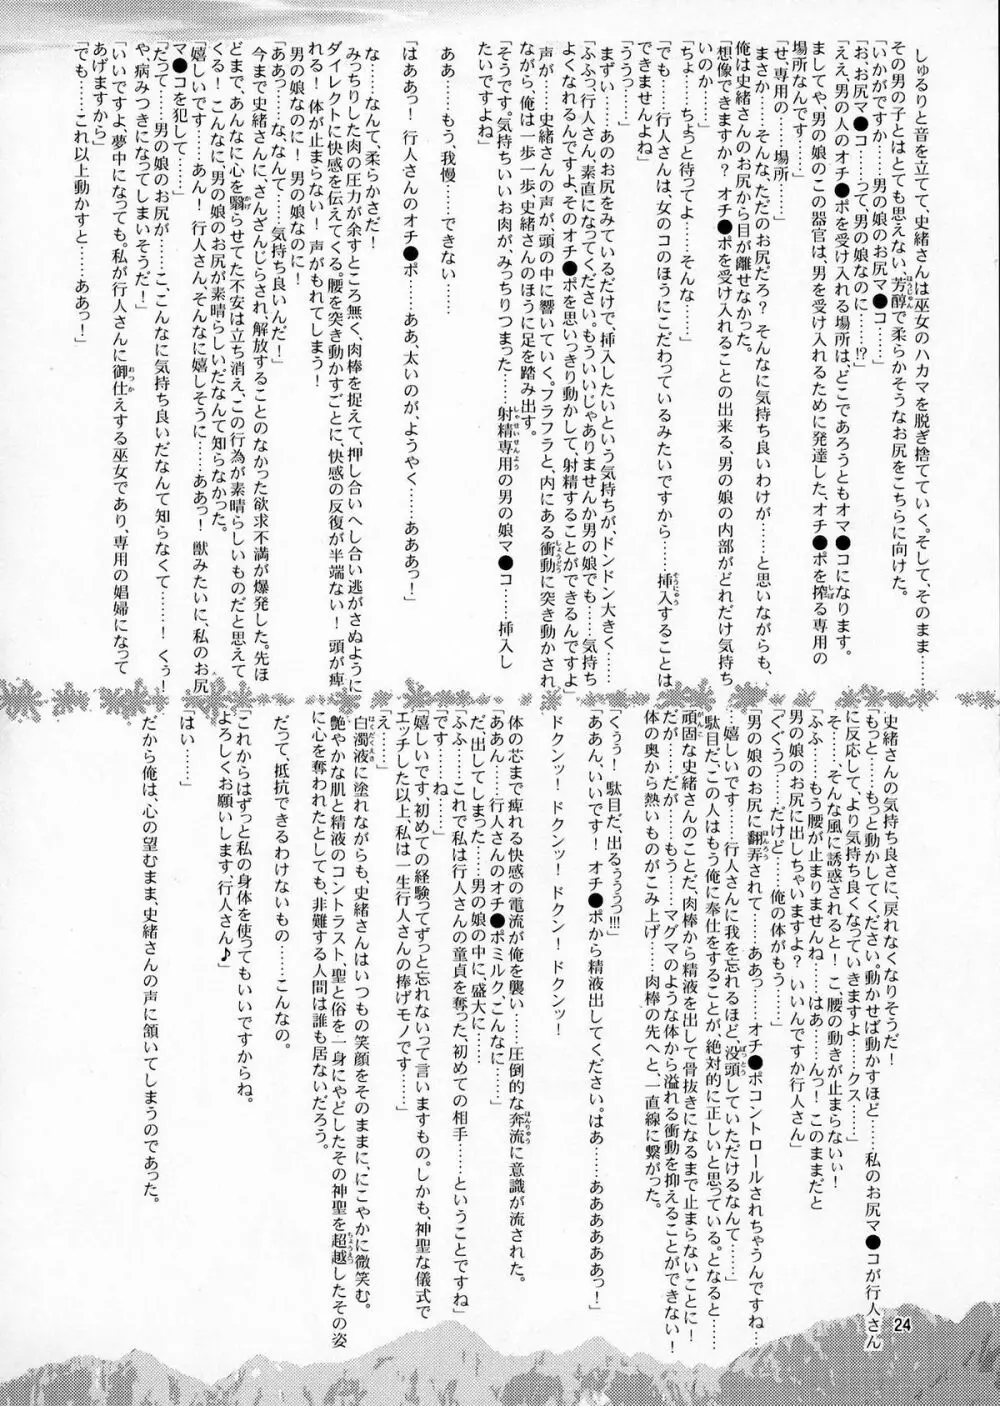 しゅるりと音を立てて、史緒さんは巫女のハカマを脱ぎ捨てていく。そして、そのまま……
その男の子とはとても思えない、芳醇で柔らかそうなお尻をこちらに向けた。
「いかがですか……男の娘のお尻マ●コ……」
「お、お尻マ●コ……って、男の娘なのに……!?」
「ええ、男の人のオチ●ポを受け入れる場所は、どこであろうともオマ●コになります。
ましてや、男の娘のこの器官は、男を受け入れるために発達した、オチ●ポを搾る専用の
場所なんです……」
「せ、専用の……場所……」
まさか……そんな、ただのお尻だろ？ そんなに気持ち良いわけが……と思いながらも、
俺は史緒さんのお尻から目が離せなかった。
「想像できますか？ オチ●ポを受け入れることの出来る、男の娘の内部がどれだけ気持ち
いいのか……」
「ちょ……ちょっと待ってよ……そんな……」
「でも……行人さんは、女のコのほうにこだわっているみたいですから……挿入することは
できませんよね」
「ううっ……」
まずい……あのお尻をみているだけで、挿入したいという気持ちが、ドンドン大きく……
「ふふっ、行人さん、素直になってください。もういいじゃありませんか男の娘でも……気持ち
よくなれるんですよ、そのオチ●ポを思いっきり動かして、射精することができるんですよ」
声が……史緒さんの声が、頭の中に響いていく。フラフラと、内にある衝動に突き動かされ
ながら、俺は一歩一歩、史緒さんのほうに足を踏み出す。
「そうです。気持ちいいお肉が、みっちりつまった……射精専用の男の娘マ●コ……挿入し
たいですよね」
ああ……もう、我慢……できない……
「はああっ！ 行人さんのオチ●ポ……ああ、太いのが、ようやく……あああっ！」
な……なんて、柔らかさだ！
みっちりした肉の圧力が余すところ無く、肉棒を捉えて、押し合いへし合い逃がさぬように
ダイレクトに快感を伝えてくる。腰を突き動かすごとに、快感の反復が半端ない！ 頭が痺
れる！ 体が止まらない！ 声がもれてしまう！
男の娘なのに！ 男の娘なのに！
「ああっ……な、なんて……気持ち良いんだ！」
今まで史緒さんに、さんざんじらされ、解放することのなかった欲求不満が爆発した。先ほ
どまで、あんなに心を翳らせてた不安は立ち消え、この行為が素晴らしいものだと思えて
くる！ こんなに、男の娘のお尻が素晴らしいだなんて知らなかった。
「嬉しいです……あん！ 行人さん、そんなに嬉しそうに……ああっ！ 獣みたいに、私のお尻
マ●コを犯して……」
「だって……男の娘のお尻が……こ、こんなに気持ち良いだなんて知らなくて……！ くぅ！
や、病みつきになってしまいそうだ！」
「いいですよ、夢中になっても。私が行人さんに御仕えする巫女であり、専用の娼婦になって
あげますから」
「でも……これ以上動かすと……ああっ！」
史緒さんの気持ち良さに、戻れなくなりそうだ！
「もっと……もっと動かしてください。動かせば動かすほど……私のお尻マ●コが行人さん
に反応して、より気持ち良くなっていきますよ……クス……」
そ……そんな風に誘惑されると！ こ、腰の動きが止まらないぃ！
「ふふ……もう腰が止まりませんね……はあ……んっ！ このままだと
男の娘のお尻に出しちゃいますよ？ いいんですか行人さん」
「ぐぐうっ……だけど……俺の体がもう……」
「男の娘のお尻に翻弄されて……ああっ……オチ●ポコントロールされちゃうんですね…
…嬉しいです……行人さんに我を忘れるほど、没頭していただけるなんて……」
駄目だ、この人はもう俺に奉仕をすることが、絶対的に正しいと思っている。となると……
頑固な史緒さんのことだ、肉棒から精液を出して骨抜きになるまで止まらないことに！
だが……だが……もう……マグマのような体から溢れる衝動を抑えることができない！
体の奥から熱いものがこみ上げ……肉棒の先へと、一直線に繋がった。
「くぅぅ！ 駄目だ、出るぅぅうっ!!!」
「ああん、いいです！ オチ●ポから精液出してください。はぁ……あああああぁっ！」
ドクンッ！ ドクンッ！ ドクン！ ドクンッ！
体の芯まで痺れる快感の電流が俺を襲い……圧倒的な奔流に意識が流された。
「ああん……行人さんのオチ●ポミルク、ごんなに……」
だ、出してしまった……男の娘の中に、盛大に……
「ふふ……これで私は行人さんの童貞を奪った、初めての相手……ということですね」
「です……ね……」
「嬉しいです、初めての経験ってずっと忘れないって言いますもの。しかも、神聖な儀式で
エッチした以上、私は一生行人さんの捧げモノです……」
「え……」
白濁液に塗れながらも、史緒さんはいつもの笑顔をそのままに、にこやかに微笑む。
艶やかな肌と精液のコントラスト、聖と俗を一身にやどしたその神聖を超越したその姿
に心を奪われたとしても、非難する人間は誰も居ないだろう。
だって、抵抗できるわけないもの……こんなの。
「これからはずっと私の身体を使ってもいいですからね。
よろしくお願いします、行人さん♪」
「はい……」
だから俺は、心の望むまま、史緒さんの声に頷いてしまうのであった。
24